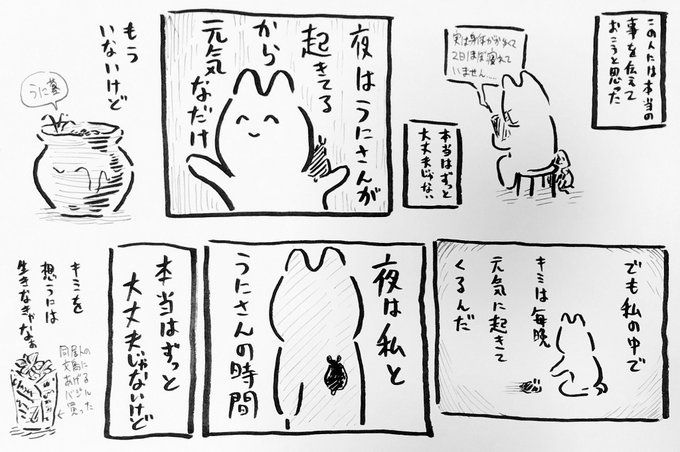 この人には本当の
事を伝えて
おこうと思った
実は身体がかゆくて
2日ほぼ寝れて
いません……
本当はずっと
大丈夫じゃない
夜はうにさんが
起きてる
から
元気なだけ
もう
いないけど
うに墓
でも私の中で
キミは毎晩
元気に起きて
くるんだ
夜は私と
うにさんの時間
本当はずっと
大丈夫じゃないけど
キミを
想うには
生きなきゃなぁ
同居人の
文鳥に
あげる
バジル
買った